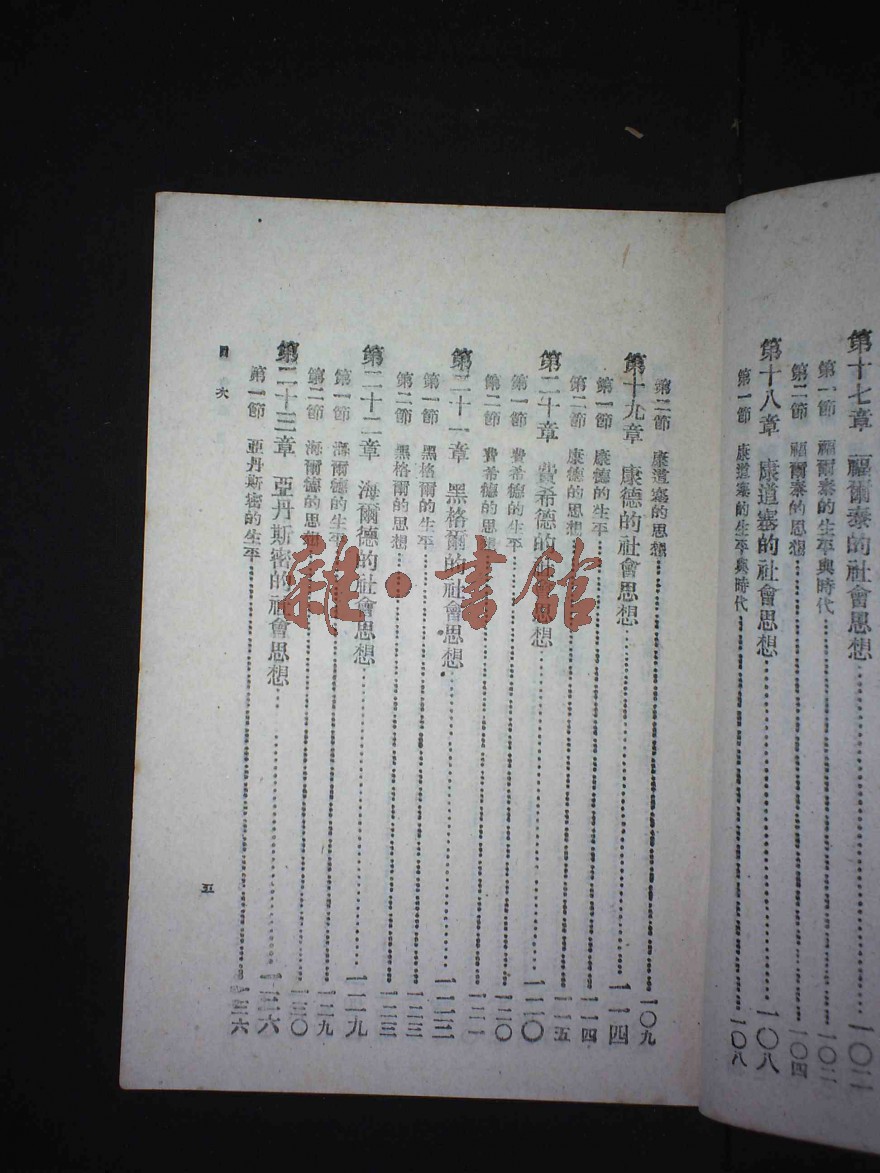 第十七章 福爾泰的社會思想 一〇二
第一節 福爾泰的生平與時代 一〇二
第二節 福爾泰的思想 一〇四
第十八章 康道塞的社會思想 一〇八
第一節 康道塞的生平與時代 一〇八
第二節 康道塞的思想 一〇九
第十九章 康德的社會思想 一一四
第一節 康德的生平 一一四
第二節 康德的思想 一一五
第二十章 費希德的社會思想 一二〇
第一節 費希德的生平 一二〇
第二節 費希德的思想 一二一
第二十一章 黑格爾的社會思想 一二三
第一節 黑格爾的生平 一二三
第二節 黑格爾的思想 一二三
第二十二章 海爾德的社會思想 一二九
第一節 海爾德的生平 一二九
第二節 海爾德的思想 一三〇
第二十三章 亞丹斯密的社會思想 一三六
第一節 亞丹斯密的生平 一三六
目次
五
雜·書館